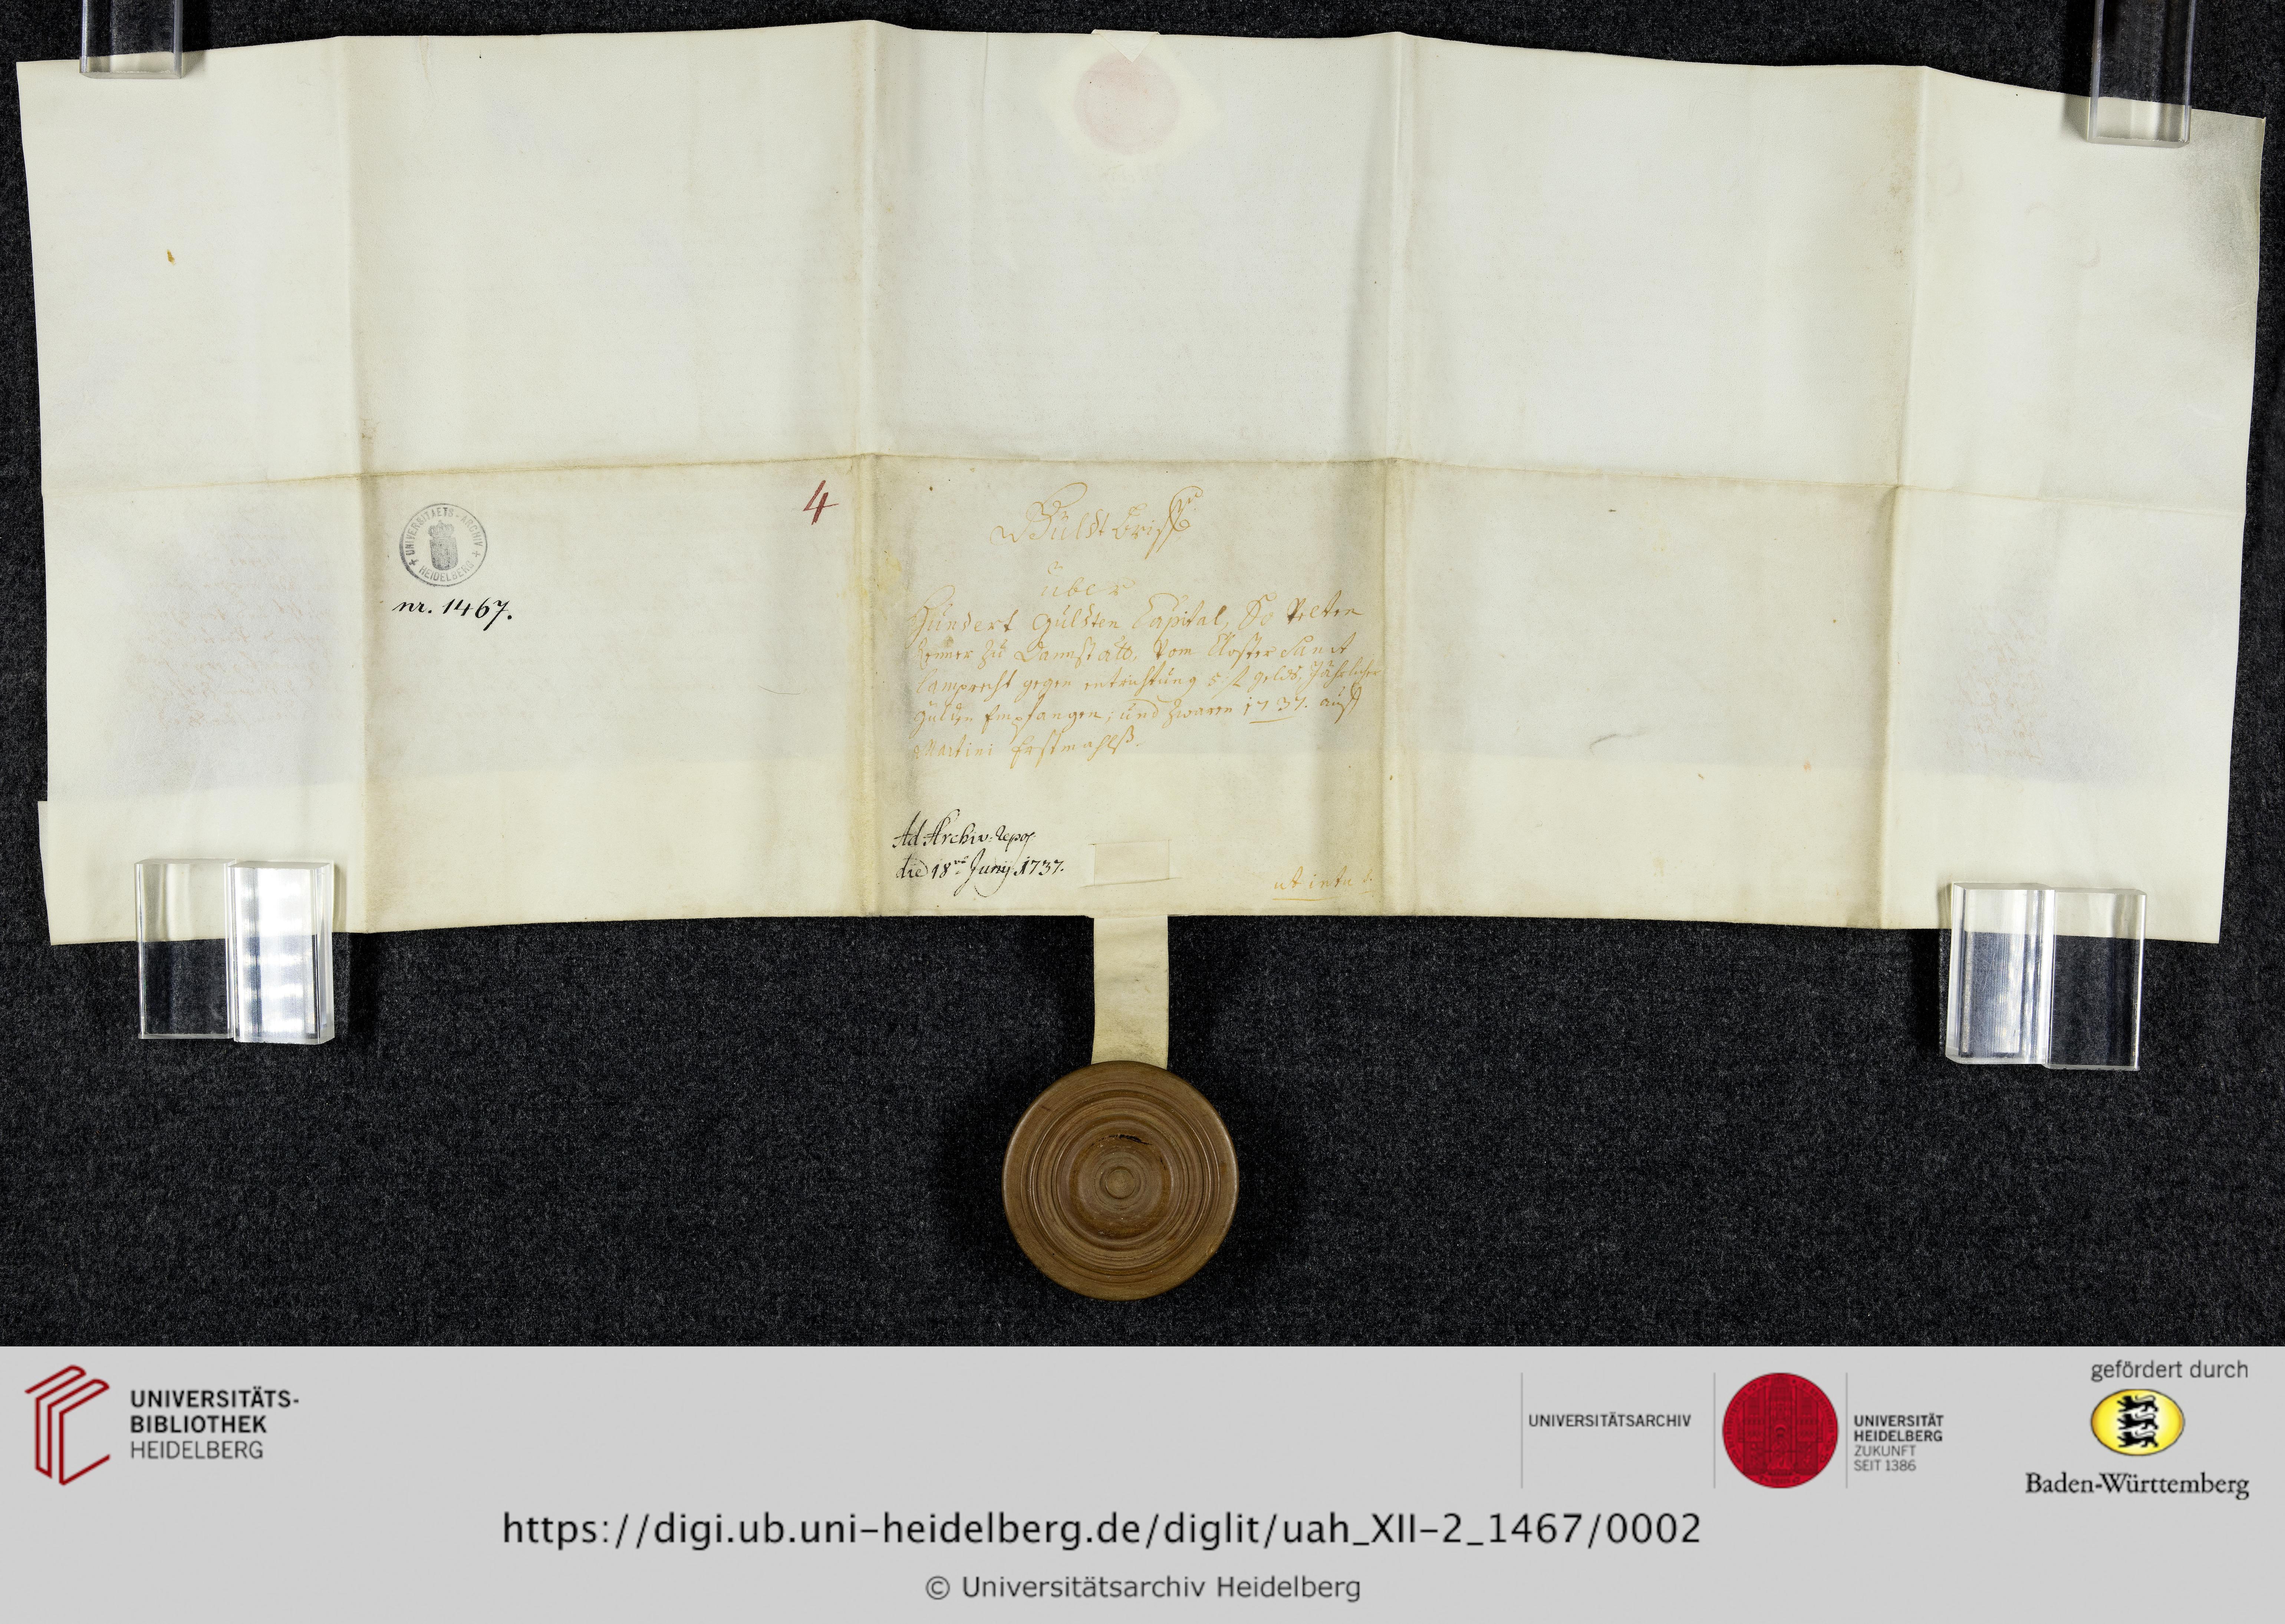 4
UNIVERSITAETS-ARCHIV
HEIDELBERG
nr. 1467.
Güldtbrieff
über
Hundert Gulden Capital, So Velten
zu Dannstatt, vom Closter Sanct
Lamprecht gegen entrichtung 5 fl gelds, Jährlicher
Gülden Empfangen; und zwaren 1737. auff
Martini Erstmahlß.
Ad Archiv. repos.
die 18va Junij 1737.
ut intus.
UNIVERSITÄTS-
BIBLIOTHEK
HEIDELBERG
UNIVERSITÄTSARCHIV
UNIVERSITÄT
HEIDELBERG
ZUKUNFT
SEIT 1386
gefördert durch
Baden-Württemberg
https://digi.ub.uni-heidelberg.de/diglit/uah_XII-2_1467/0002
© Universitätsarchiv Heidelberg